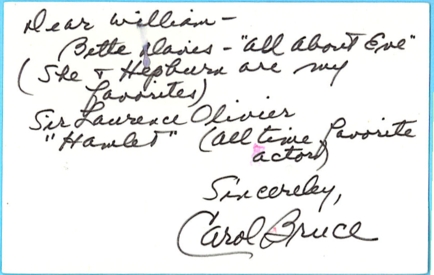 Dear William-
Bette Davis - "All About Eve"
(She & Hepburn are my
favorites)
Sir Laurence Olivier
"Hamlet" (all time favorite
actor)
Sincereley,
Carol Bruce